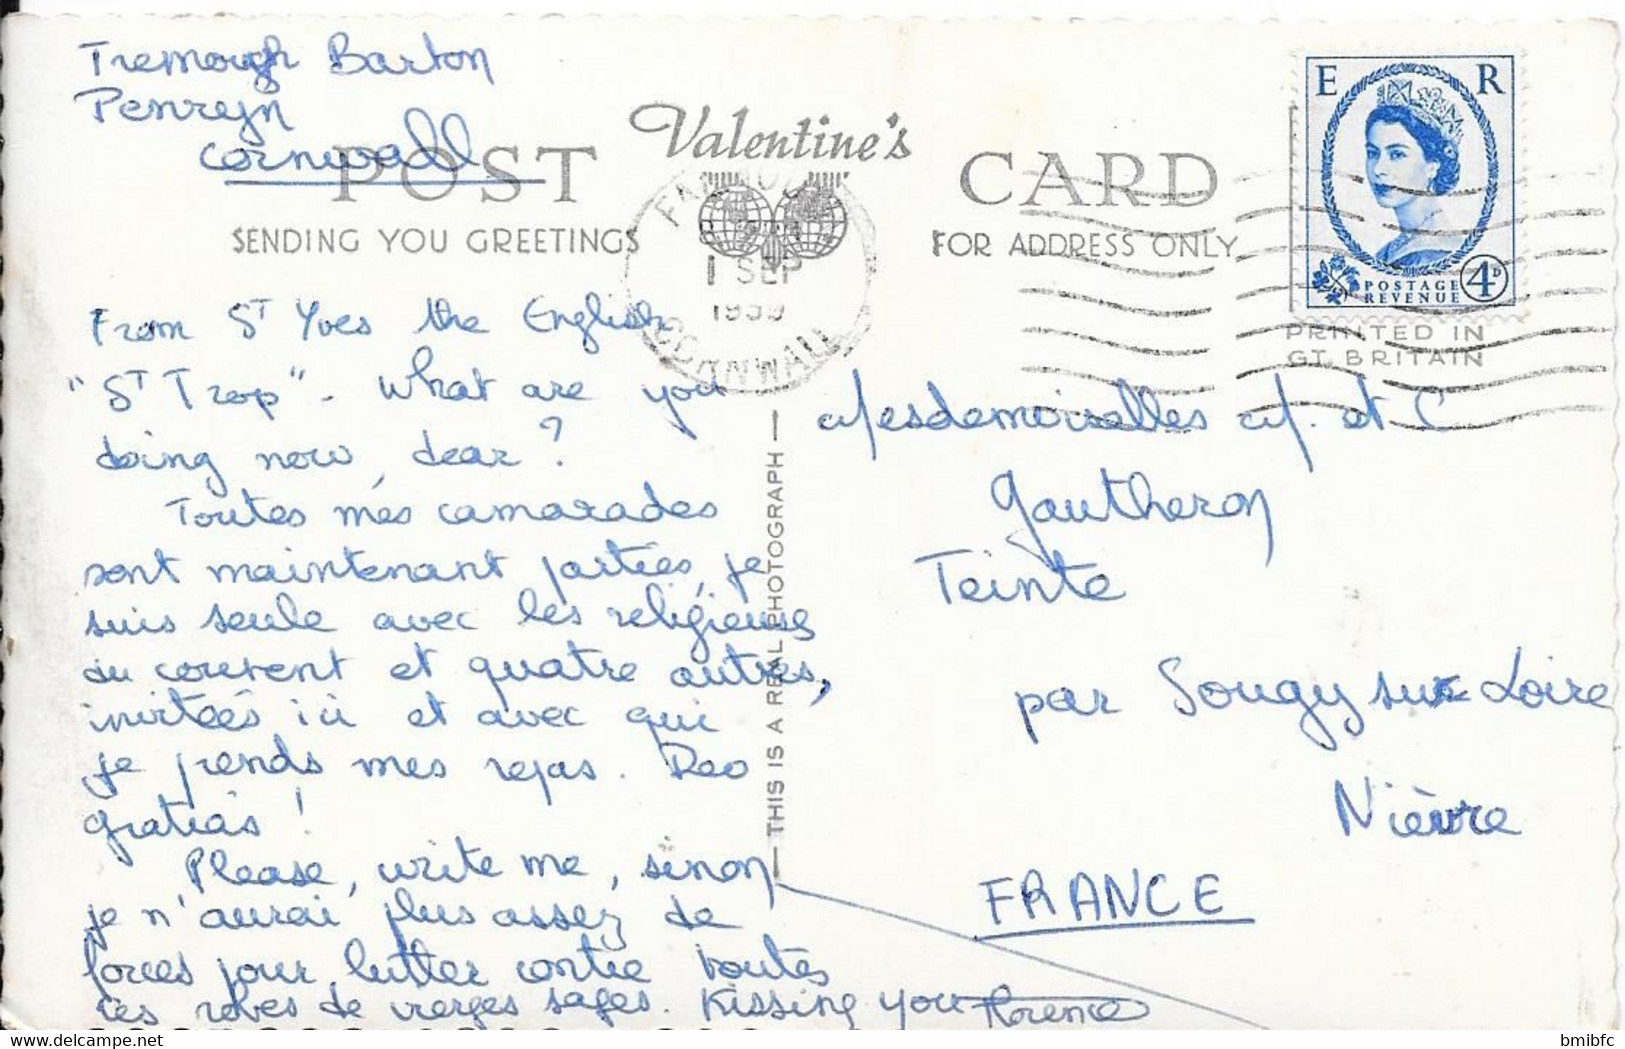 Tremough Barton
Penryn
Cornwall
POST CARD
Valentine's
SENDING YOU GREETINGS
FOR ADDRESS ONLY
1 SEP
CORNWALL
E R
POSTAGE
REVENUE
4D
PRINTED IN
GT. BRITAIN
From St Yves the English
"St Trop". What are you
doing now, dear?
Toutes mes camarades
sont maintenant parties, je
suis seule avec les religieuses
du couvent et quatre autres,
invitées ici et avec qui
je prends mes repas. Deo
gratias!
Please, write me, sinon
je n'aurai plus assez de
forces pour lutter contre toutes
ces robes de vierges sages. Kissing you Florence
THIS IS A REAL PHOTOGRAPH
Mesdemoiselles M. et C
Gautheron
Teinte
par Sougy sur Loire
Nièvre
FRANCE
bmibfc